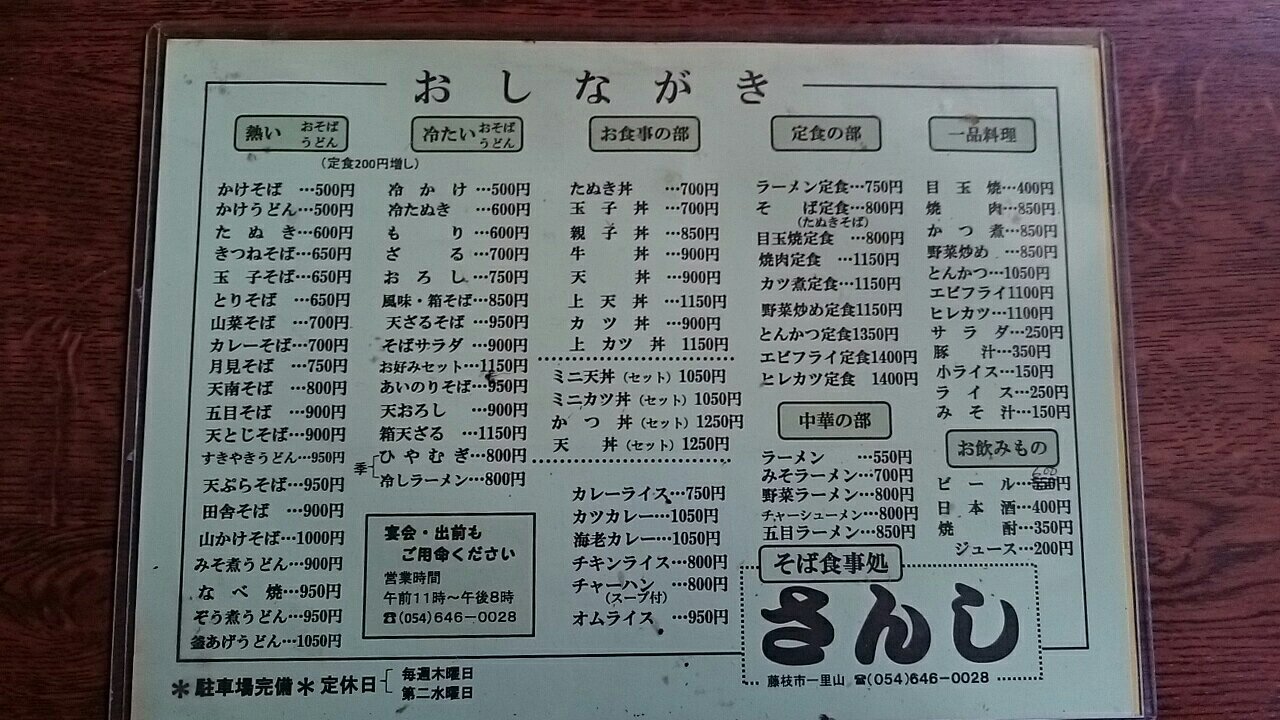 おしながき
熱い おそば うどん
かけそば …500円
かけうどん…500円
たぬき…600円
きつねそば…650円
玉子そば…650円
とりそば …650円
山菜そば …700円
カレーそば…700円
月見そば …750円
天南そば …800円
五目そば …900円
天とじそば…900円
すきやきうどん…950円
天ぷらそば…950円
田舎そば …900円
山かけそば…1000円
みそ煮うどん…900円
なべ焼…950円
ぞう煮うどん…950円
釜あげうどん…1050円
冷たい おそば うどん
(定食200円増し)
冷かけ…500円
冷たぬき …600円
もり…600円
ざる…700円
おろし…750円
風味・箱そば…850円
天ざるそば …950円
そばサラダ …900円
お好みセット…1150円
あいのりそば…950円
天おろし …900円
箱天ざる …1150円
季
ひやむぎ…800円
冷しラーメン…800円
宴会・出前も
ご用命ください
営業時間
午前11時〜午後8時
☎(054)646-0028
お食事の部
たぬき丼 …700円
玉子丼 …700円
親子丼 …850円
牛丼 …900円
天丼 …900円
上天丼 …1150円
カツ丼 …900円
上カツ丼 1150円
ミニ天丼(セット) 1050円
ミニカツ丼(セット) 1050円
かつ丼(セット) 1250円
天丼(セット) 1250円
カレーライス…750円
カツカレー…1050円
海老カレー…1050円
チキンライス…800円
チャーハン …800円
(スープ付)
オムライス …950円
定食の部
ラーメン定食…750円
そば定食…800円
(たぬきそば)
目玉焼定食 …800円
焼肉定食 …1150円
カツ煮定食…1150円
野菜炒め定食1150円
とんかつ定食1350円
エビフライ定食1400円
ヒレカツ定食 1400円
中華の部
ラーメン …550円
みそラーメン…700円
野菜ラーメン…800円
チャーシューメン…800円
五目ラーメン…850円
一品料理
目玉焼…400円
焼肉…850円
かつ煮…850円
野菜炒め …850円
とんかつ…1050円
エビフライ1100円
ヒレカツ…1100円
サラダ…250円
豚汁…350円
小ライス…150円
ライス…250円
みそ汁…150円
お飲みもの
ビール…600円
日本酒…400円
焼酎…350円
ジュース…200円
そば食事処
さんし
藤枝市一里山 ☎(054)646-0028
＊駐車場完備＊定休日
毎週木曜日
第二水曜日